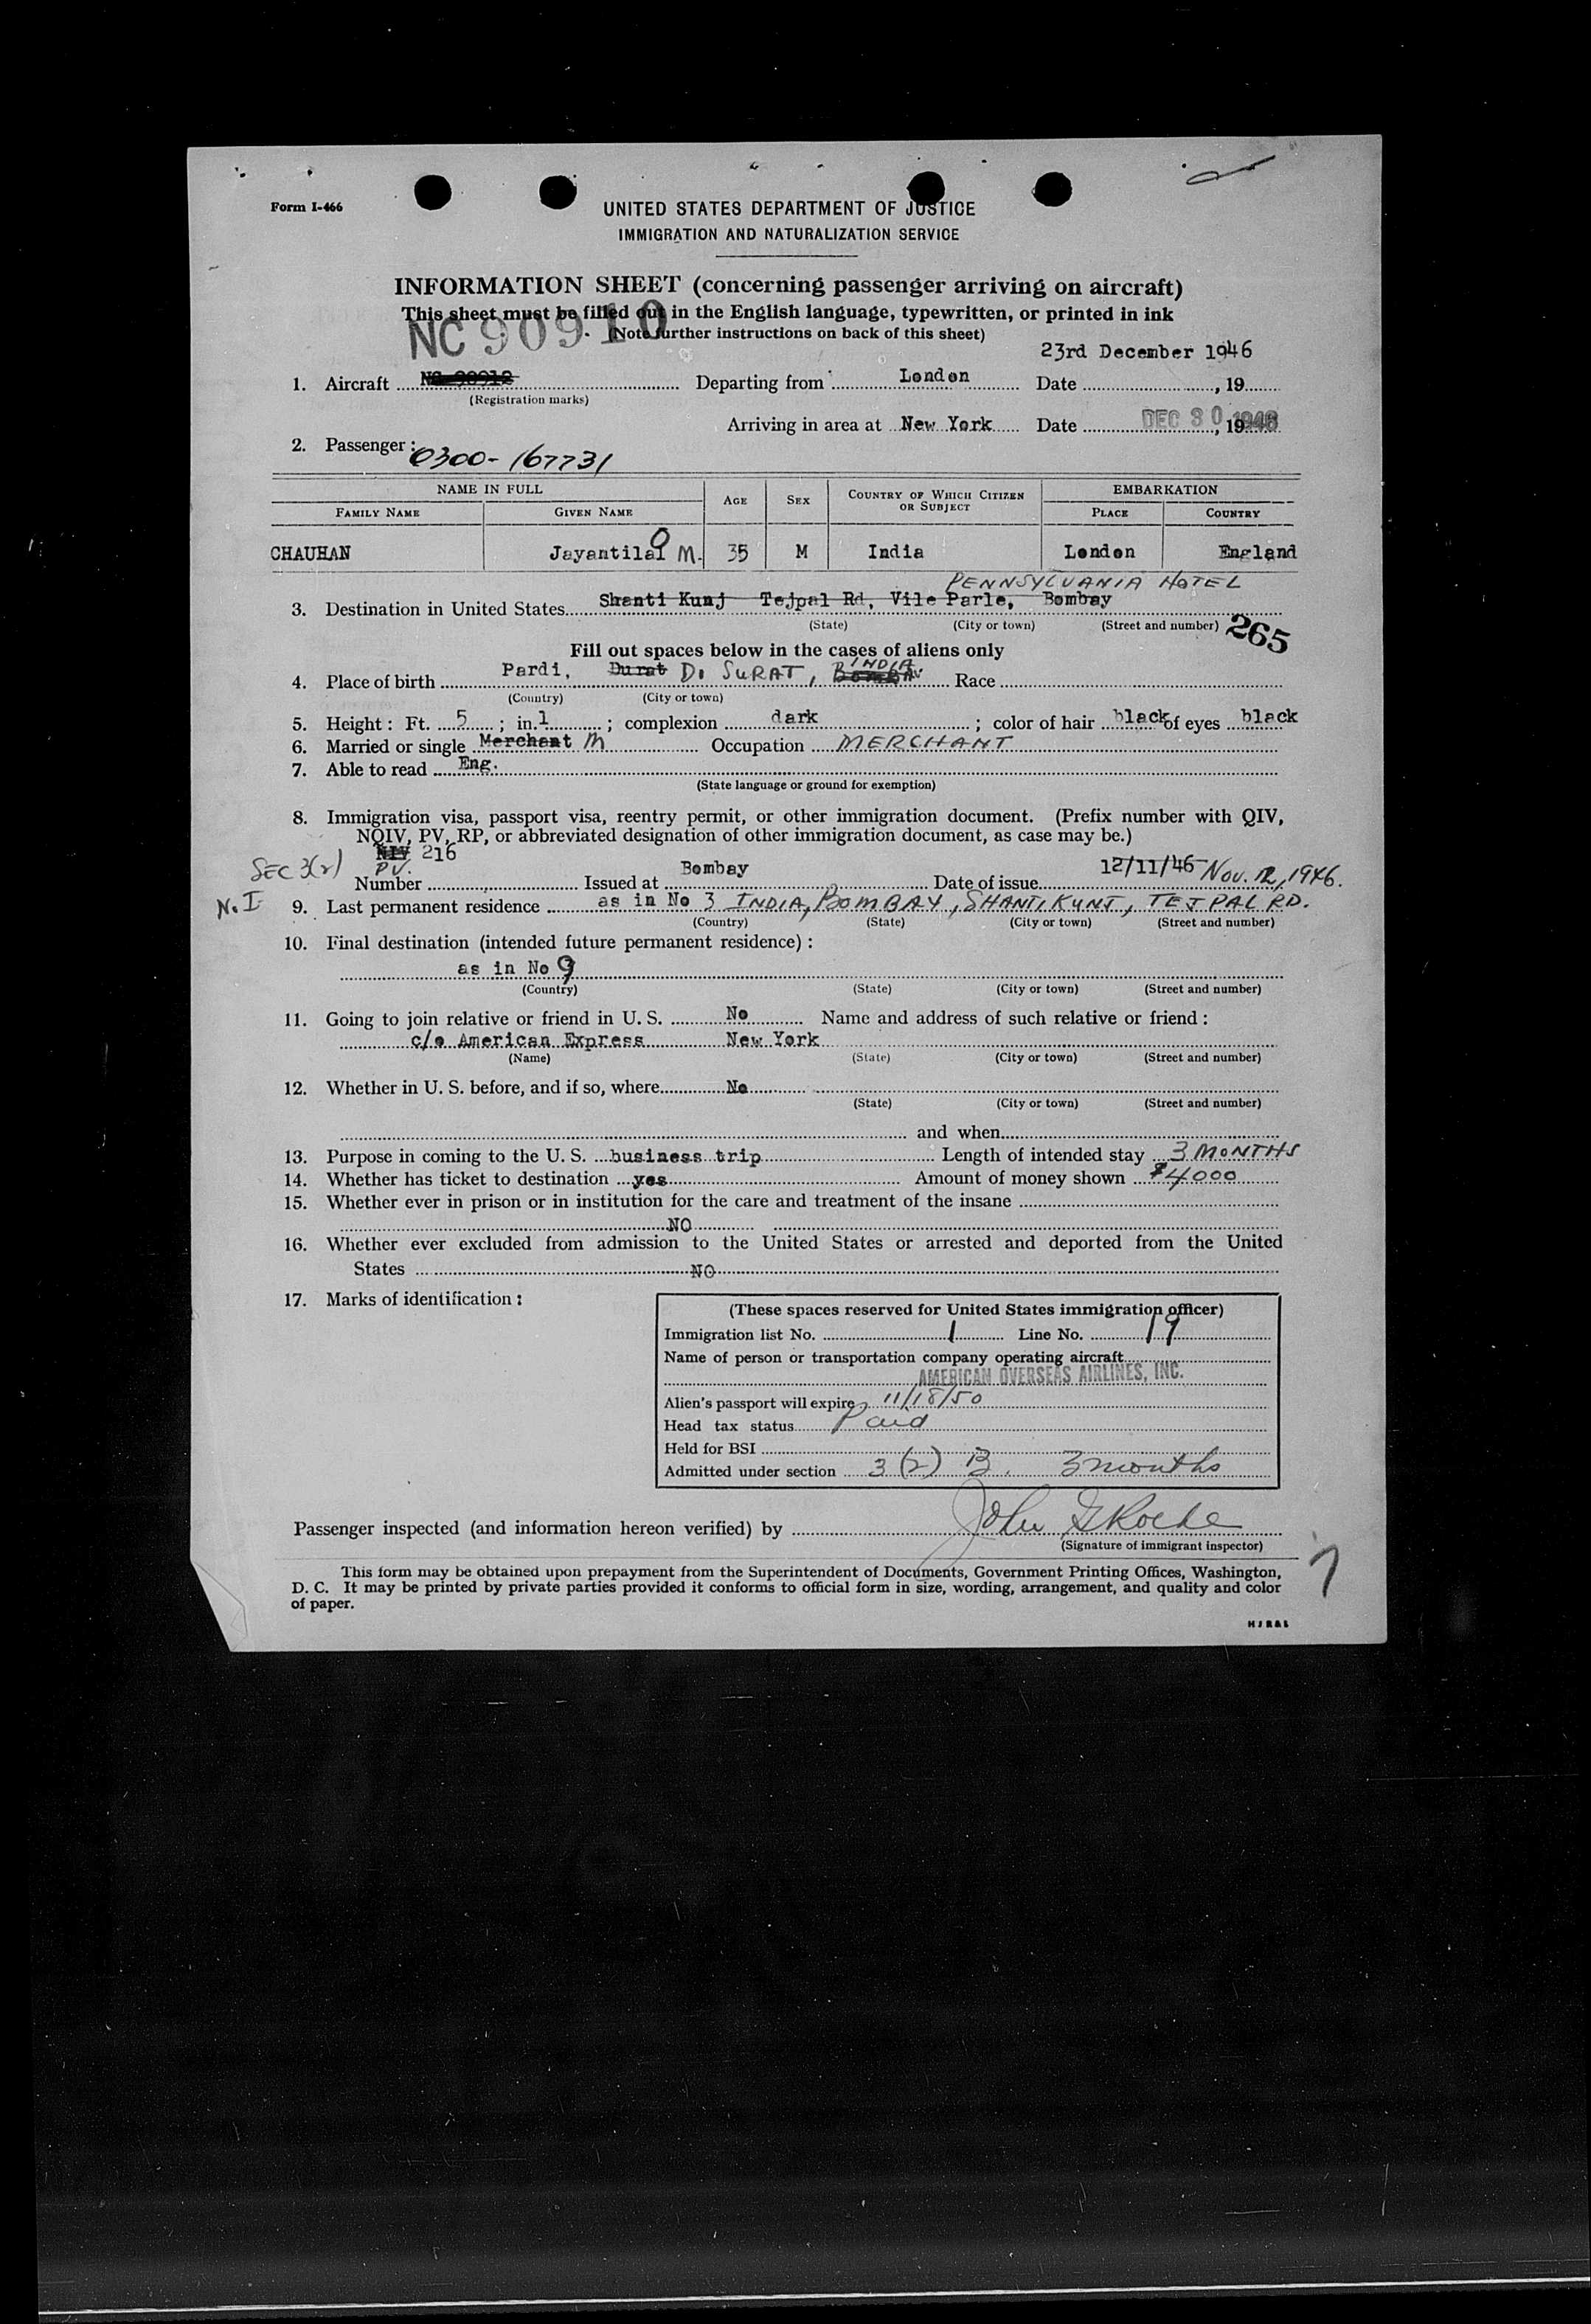 Form I-466
UNITED STATES DEPARTMENT OF JUSTICE
IMMIGRATION AND NATURALIZATION SERVICE
INFORMATION SHEET (concerning passenger arriving on aircraft)
This sheet must be filled out in the English language, typewritten, or printed in ink
NC 90910
(Note further instructions on back of this sheet)
23rd December 1946
1. Aircraft NC 90912 Departing from London Date , 19
(Registration marks)
Arriving in area at New York Date DEC 30 1946, 19
2. Passenger: 0300-167731
NAME IN FULL AGE SEX COUNTRY OF WHICH CITIZEN OR SUBJECT EMBARKATION
FAMILY NAME GIVEN NAME PLACE COUNTRY
CHAUHAN Jayantilal M. 35 M India London England
PENNSYLVANIA HOTEL
3. Destination in United States Shanti Kunj Tejpal Rd, Vile Parle, Bombay
(State) (City or town) (Street and number) 265
Fill out spaces below in the cases of aliens only
4. Place of birth Pardi, Durat D. SURAT, BOMBAY INDIA Race
(Country) (City or town)
5. Height: Ft. 5; in. 1; complexion dark; color of hair black of eyes black
6. Married or single Merchant M Occupation MERCHANT
7. Able to read Eng.
(State language or ground for exemption)
8. Immigration visa, passport visa, reentry permit, or other immigration document. (Prefix number with QIV,
NQIV, PV, RP, or abbreviated designation of other immigration document, as case may be.)
SEC 3(2) NIV 216
PV.
Number Issued at Bombay Date of issue 12/11/46 Nov. 12, 1946.
N.I 9. Last permanent residence as in No 3 INDIA, BOMBAY, SHANTI KUNJ, TEJPAL RD.
(Country) (State) (City or town) (Street and number)
10. Final destination (intended future permanent residence):
as in No 9
(Country) (State) (City or town) (Street and number)
11. Going to join relative or friend in U. S. No Name and address of such relative or friend:
c/o American Express New York
(Name) (State) (City or town) (Street and number)
12. Whether in U. S. before, and if so, where No
(State) (City or town) (Street and number)
and when
13. Purpose in coming to the U. S. business trip Length of intended stay 3 MONTHS
14. Whether has ticket to destination yes Amount of money shown $4000
15. Whether ever in prison or in institution for the care and treatment of the insane
NO
16. Whether ever excluded from admission to the United States or arrested and deported from the United
States NO
17. Marks of identification:
(These spaces reserved for United States immigration officer)
Immigration list No. 1 Line No. 19
Name of person or transportation company operating aircraft
AMERICAN OVERSEAS AIRLINES, INC.
Alien's passport will expire 11/18/50
Head tax status Paid
Held for BSI
Admitted under section 3(2) B. 3 months
Passenger inspected (and information hereon verified) by John G Roche
(Signature of immigrant inspector)
This form may be obtained upon prepayment from the Superintendent of Documents, Government Printing Offices, Washington,
D. C. It may be printed by private parties provided it conforms to official form in size, wording, arrangement, and quality and color
of paper.
7